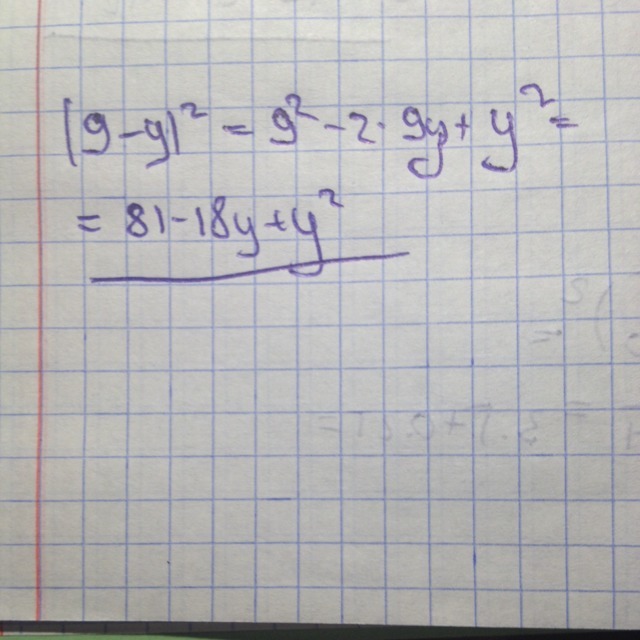 (9-y)² = 9² - 2· 9y + y² =
= 81 - 18y + y²